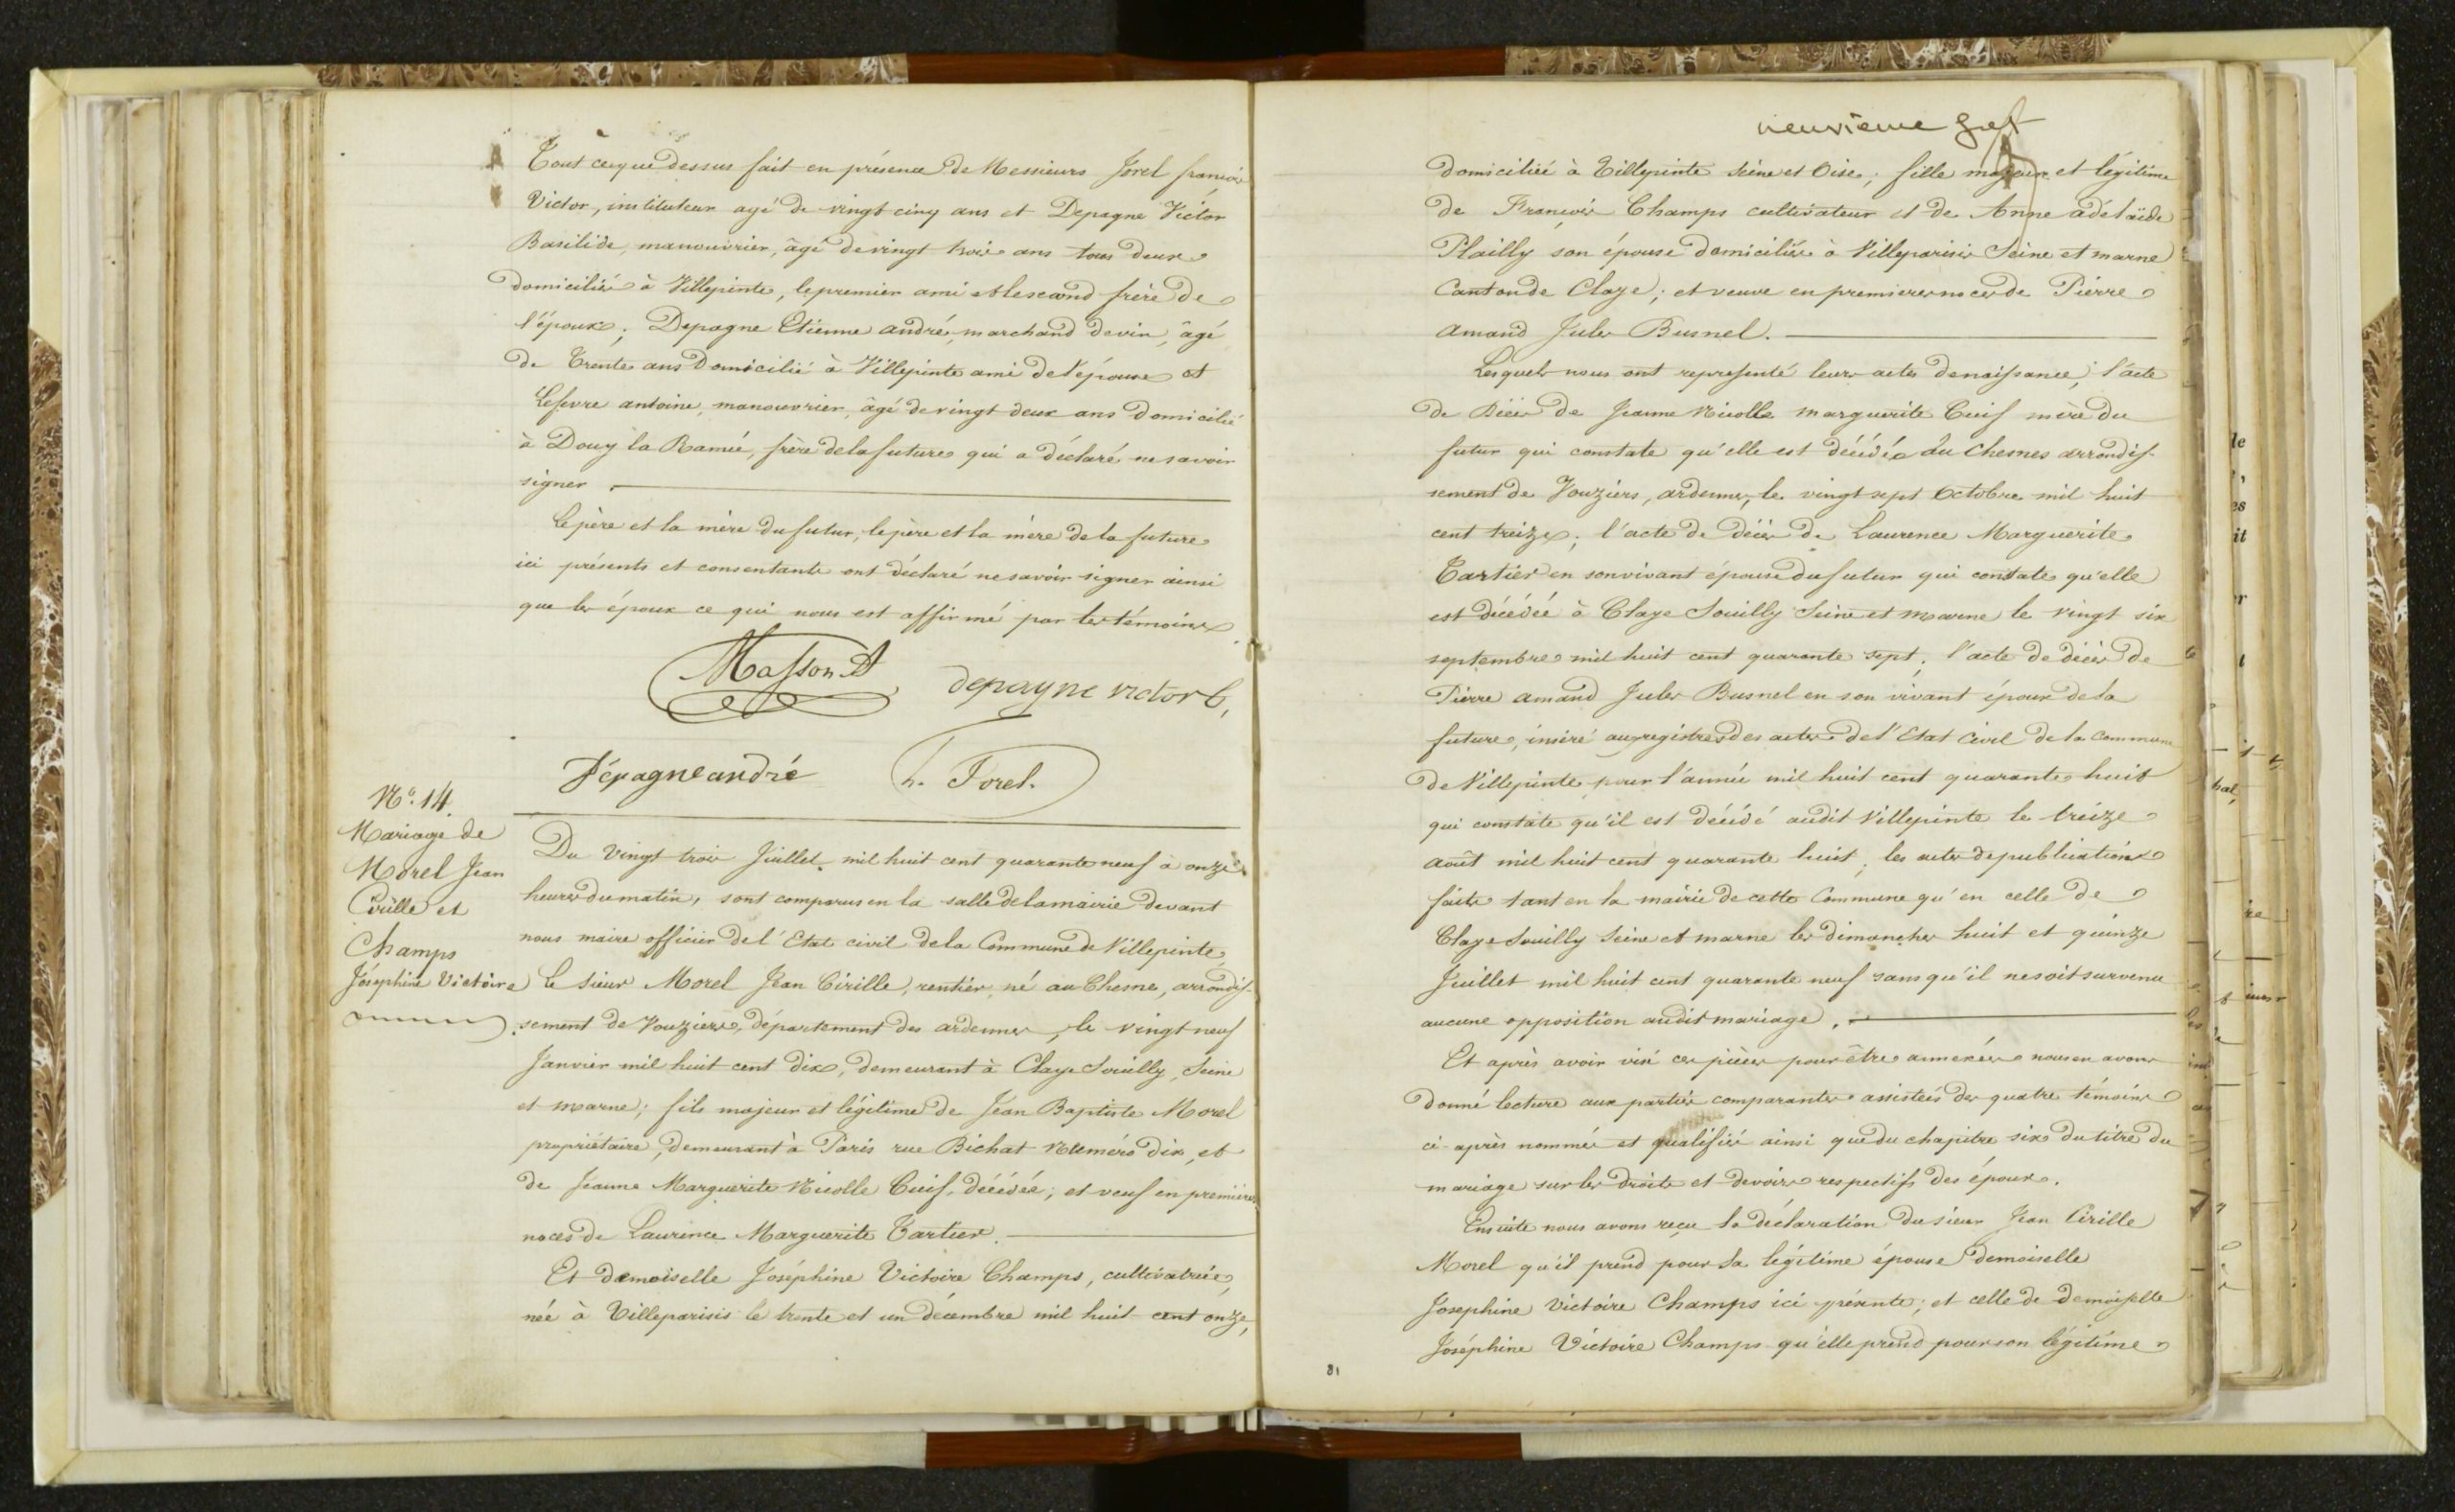 Tout ce que dessus fait en présence de Messieurs Jorel françois
Victor, instituteur agé de vingt cinq ans et Depagne Victor
Basilide, manouvrier, âgé de vingt trois ans tous deux
domiciliés à Villepinte, le premier ami et le second frère de
l'époux; Depagne Etienne andré, marchand de vin, âgé
de Trente ans Domicilié à Villepinte ami de l'épouse et
Lefevre antoine, manouvrier, âgé de vingt deux ans Domicilié
à Douy la Ramée, frère de la future qui a déclaré ne savoir
signer.
Le père et la mère du futur, le père et la mère de la future
ici présents et consentants ont déclaré ne savoir signer ainsi
que les époux ce qui nous est affirmé par les témoins
Masson A
depagne victor b,
Dépagne andré
Jorel.
No. 14.
Mariage de
Morel Jean
Cirille et
Champs
Joséphine Victoire
Du vingt trois Juillet mil huit cent quarante neuf à onze
heures du matin, sont comparus en la salle de la mairie devant
nous maire officier de l'Etat civil de la Commune de Villepinte,
Le sieur Morel Jean Cirille, rentier, né au Chesne, arrondis-
sement de Vouziers, département des ardennes, le vingt neuf
Janvier mil huit cent dix, demeurant à Claye Souilly, Seine
et marne; fils majeur et légitime de Jean Baptiste Morel
propriétaire, demeurant à Paris rue Bichat Numéro dix, et
de Jeanne Marguerite Nicolle Cuif, décédée; et veuf en premières
noces de Laurence Marguerite Tartier.
Et demoiselle Joséphine Victoire Champs, cultivatrice,
née à Villeparisis le trente et un décembre mil huit cent onze,
neuvième
domiciliée à Villepinte Seine et Oise; fille majeure et légitime
de François Champs cultivateur et de Anne adélaïde
Plailly son épouse domiciliés à Villeparisis Seine et marne
Canton de Claye; et veuve en premieres noces de Pierre
amand Jules Busnel.
Lesquels nous ont représenté leurs actes de naissance; l'acte
de Décès de Jeanne Nicolle marguerite Cuif mère du
futur qui constate qu'elle est décédée au Chesnes arrondis-
sement de Vouziers, ardennes, le vingt sept Octobre mil huit
cent treize; l'acte de décès de Laurence Marguerite
Tartier en son vivant épouse du futur qui constate qu'elle
est décédée à Claye Souilly Seine et marne le vingt six
septembre mil huit cent quarante sept; l'acte de décès de
Pierre amand Jules Busnel en son vivant époux de la
future, inséré aux registres des actes de l'Etat Civil de la Commune
de Villepinte pour l'année mil huit cent quarante huit
qui constate qu'il est décédé audit Villepinte le treize
août mil huit cent quarante huit; les actes de publications
faites tant en la mairie de cette Commune qu'en celle de
Claye Souilly Seine et marne les dimanches huit et quinze
Juillet mil huit cent quarante neuf sans qu'il ne soit survenu
aucune opposition audit mariage.
Et après avoir visé ces pièces pour être annexées nous en avons
donné lecture aux parties comparantes assistées des quatre témoins
ci-après nommés et qualifiés ainsi que du chapitre six du titre du
mariage sur les droits et devoirs respectifs des époux.
Ensuite nous avons reçu la déclaration du sieur Jean Cirille
Morel qu'il prend pour sa légitime épouse demoiselle
Josephine Victoire Champs ici présente; et celle de demoiselle
Joséphine Victoire Champs qu'elle prend pour son légitime
81